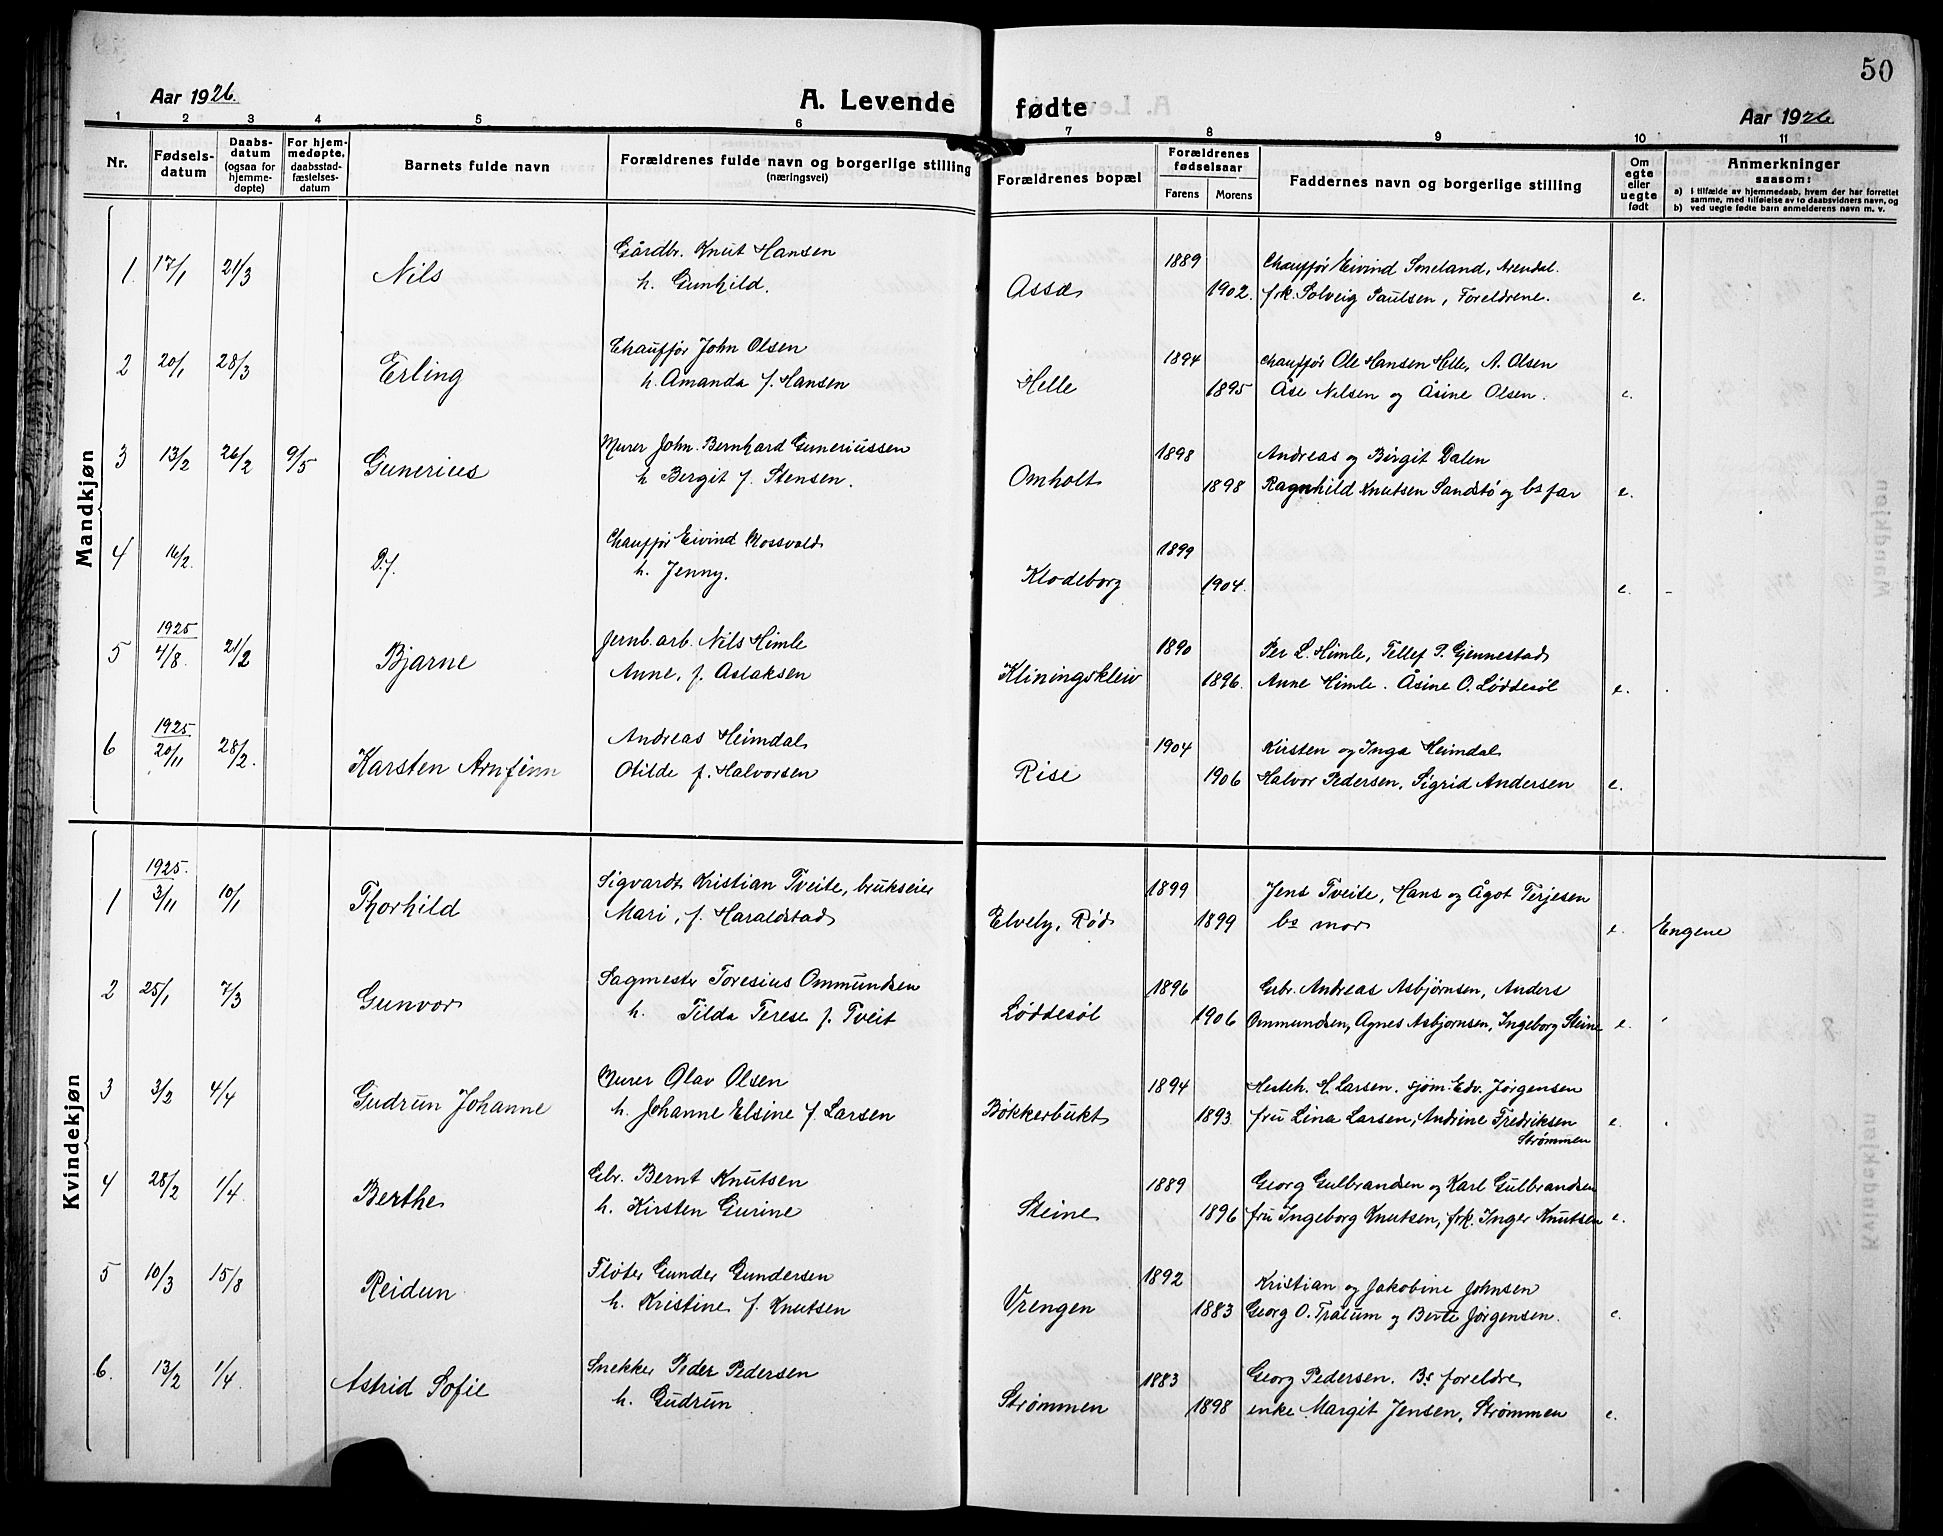 50
Aar 1926.
A. Levende fødte
Aar 1926
1 2 3 4 5 6 7 8 9 10 11
Nr.
Fødsels-
datum
Daabs-
datum
(ogsaa for
hjemme-
døpte)
For hjem-
medøpte,
daabsstad-
fæstelses-
datum
Barnets fulde navn
Forældrenes fulde navn og borgerlige stilling
(næringsvei)
Forældrenes bopæl
Forældrenes
fødselsaar
Farens Morens
Faddernes navn og borgerlige stilling
Om
egte
eller
uegte
født
Anmerkninger
saasom:
a) i tilfælde av hjemmedaab, hvem der har forrettet
samme, med tilføielse av to daabsvidners navn, og
b) ved uegte fødte barn anmelderens navn m. v.
Mandkjøn
1. 17/1 21/3 Nils
Gårdbr. Knut Hansen
h. Gunhild.
Assæ 1889 1902.
Chauffør Eivind Soneland, Arendal.
frk. Solveig Paulsen, Foreldrene. e.
2 20/1 28/3 Erling
Chauffør John Olsen
h. Amanda f. Hansen
Helle 1894 1895
Chauffør Ole Hansen Helle, A. Olsen
Åse Nilsen og Åsine Olsen. e.
3 13/2 26/2 9/5 Gunerius
Murer John Bernhard Guneriussen
h Bergit f. Stensen.
Omholt 1898 1898
Andreas og Birgit Dalen
Ragnhild Knutsen Sandstø og bs far e.
4 16/2. D.f.
Chauffør Eivind Mossvold
h. Jenny.
Klodeborg 1899 1904. e. -
5 1925 4/8. 21/2 Bjarne
Jernb.arb. Nils Himle
Anne, f. Aslaksen
Kliningskleiv 1890 1896.
Per L. Himle, Tellef P. Gjennestad
Anne Himle. Åsine O. Løddesøl e.
6 1925 20/11 28/2. Karsten Arnfinn
Andreas Heimdal
Otilde f. Halvorsen
Rise 1904 1906
Kirsten og Inga Heimdal
Halvor Pedersen, Sigrid Andersen e.
Kvindekjøn
1 1925. 3/11 10/1 Thorhild
Sigvard Kristian Tveite, brukseier
Mari, f. Haraldstad
Elveby, Rød 1899 1899
Jens Tveite, Hans og Ågot Terjesen
bs mor e. Engene
2 25/1 7/3 Gunvor
Sagmester Toresius Ommundsen
h. Tilda Terese f. Tveit
Løddesøl 1896 1906
Grbr. Andreas Asbjørnsen, Anders
Ommundsen, Agnes Asbjørnsen, Ingeborg Steine e.
3 3/2 4/4 Gudrun Johanne
Murer Olav Olsen
h. Johanne Elsine f. Larsen
Bøkkerbukt 1894 1893.
Hesteh. H. Larsen. sjøm. Edv. Jørgensen
fru Lina Larsen, Andrine Fredriksen e.
Strømmen
4 28/2 1/4. Berthe
Gbr. Bernt Knutsen
h. Kirsten Gurine
Steine 1889 1896
Georg Gulbrandsen og Karl Gulbrandsen
fru Ingeborg Knutsen, frk. Inger Knutsen e.
5 10/3 15/8 Reidun
Fløter Gunder Gundersen
h. Kristine f. Knutsen
Vrengen 1892 1883
Kristian og Jakobine Johnsen
Georg O. Traium og Berte Jørgensen. e.
6. 13/2 1/4. Astrid Sofie
Snekker Peder Pedersen
h. Gudrun
Strømmen 1883 1898
Georg Pedersen. Bs foreldre
enke Margit Jensen, Strømmen e.